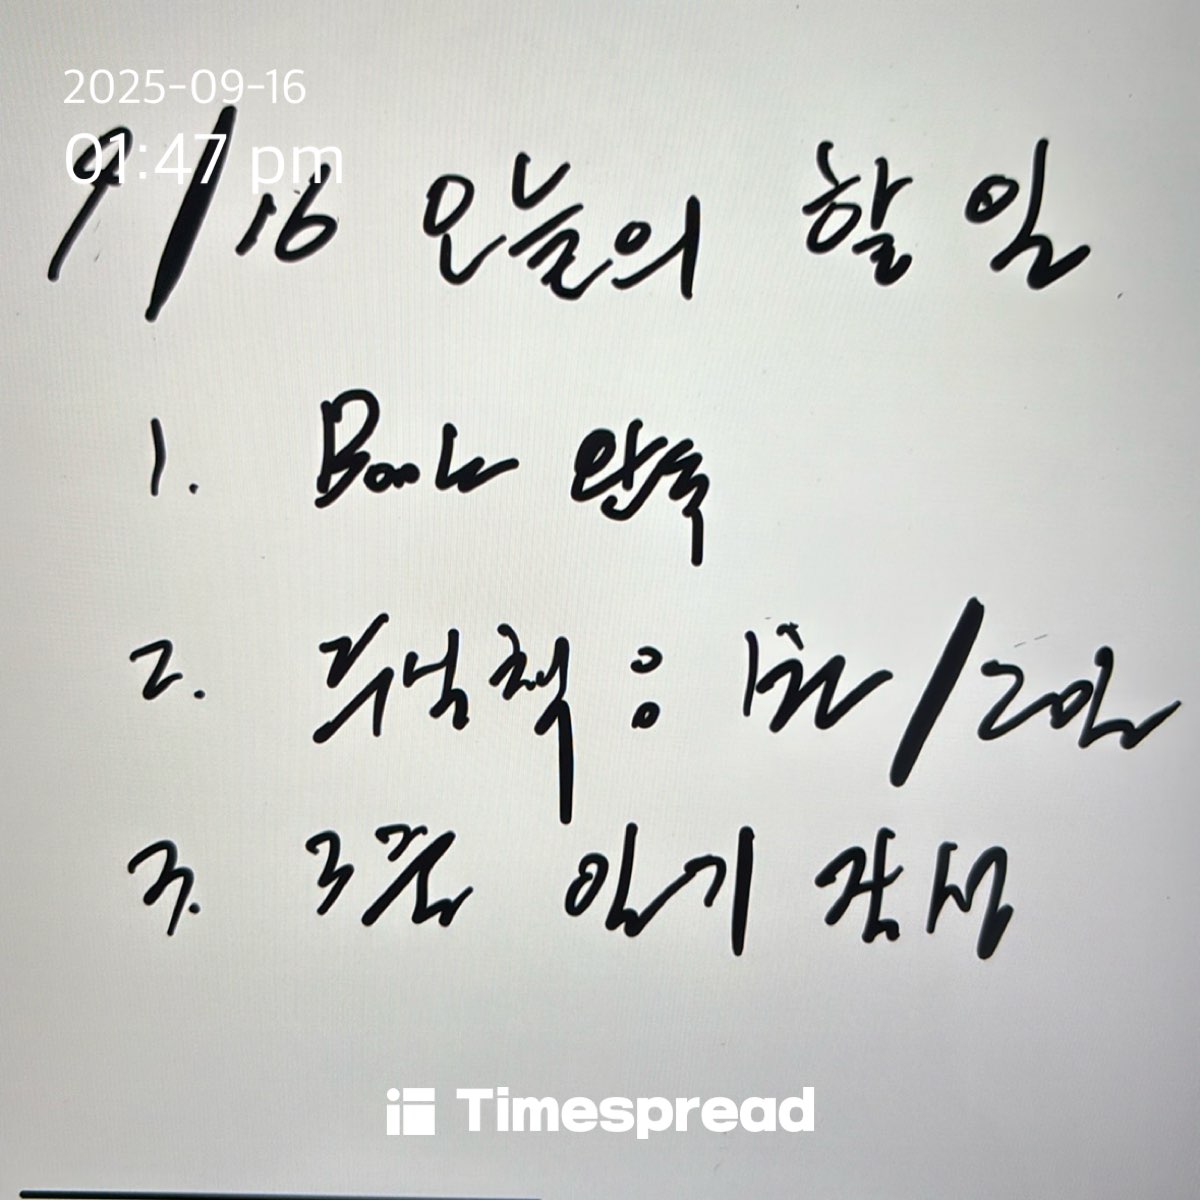 2025-09-16
01:47 pm
9/16 오늘의 할 일
1. Book 완독
2. 주식책 : 1권/2일
3. 3줄 일기 작성
Timespread